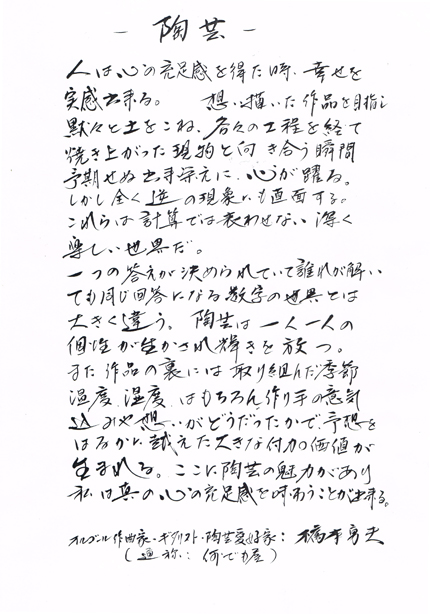 － 陶芸 －
人は、心の充足感を得た時、幸せを
実感出来る。　想い描いた作品を目指し
黙々と土をこね、各々の工程を経て
焼き上がった現物と向き合う瞬間
予期せぬ出来栄えに、心が躍る。
しかし全く逆の現象にも直面する。
これらは計算では表わせない深く
楽しい世界だ。
一つの答えが決められていて誰れが解い
ても同じ回答になる数字の世界とは
大きく違う。陶芸は一人一人の
個性が生かされ輝きを放つ。
また作品の裏には取り組んだ季節
温度、湿度、はもちろん作り手の意気
込みや想いがどうだったかで、予想を
はるかに越えた大きな付加価値が
生まれる。ここに陶芸の魅力があり
私は真の心の充足感を味わうことが出来る。
オルゴール作曲家・ギタリスト・陶芸愛好家：橋本勇夫
（通称：何でも屋）